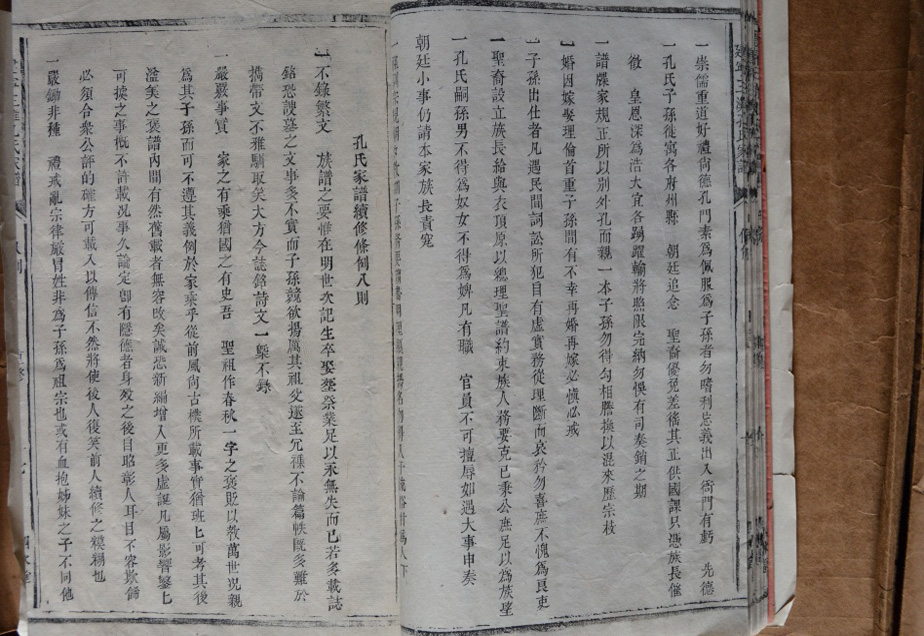 一崇儒重道好禮尚德孔門素為佩服為子孫者勿嗜利忘義出入衙門有虧　先德
一孔氏子孫徙寓各府州縣　朝廷追念　聖裔優免差徭其正供國課只憑族長催
徵　皇恩深為浩大宜各踴躍輸將照限完納勿悞有司奏銷之期
一譜牒家規正所以別外孔而親一本子孫勿得勾相謄換以混來歷宗枝
一婚因嫁娶理倫首重子孫間有不幸再婚再嫁必慎必戒
一子孫出仕者凡遇民間詞訟所犯目有虛實務從理斷而哀矜勿喜庶不愧為良吏
一聖裔設立族長給與衣頂原以總理聖譜約束族人務要克己秉公庶足以為族望
一孔氏嗣孫男不得為奴女不得為婢凡有職　官員不可擅辱如遇大事申奏
朝廷小事仍請本家族長責究
孔氏家譜續修條例八則
一不錄繁文　族譜之要惟在明世次記生卒娶葬祭業足以永無失而已若多載誌
銘恐諛墓之文事多不實而子孫競欲揚厲其祖父遂至冗襍不論篇帙既多難於
攜帶文不雅馴取矣大方今誌銘詩文一槩不錄
一嚴覈事實　家之有乘猶國之有史吾　聖祖作春秋一字之褒貶以教萬世况親
為其子孫而可不遵其義例於家乘乎從前風尚古樸所載事實猶班匕可考其後
溢美之褒譜內間有然舊載者無容改矣誠恐新編增入更多虛誕凡屬影響鑿匕
可據之事概不許載况事久論定卽有隱德者身歿之後目昭彰人耳目不容欺飾
必須合衆公評的確方可載入以傳信不然將使後人復笑前人續修之糢糊也
一嚴鋤非種　禮戒亂宗律嚴冐姓非為子孫為祖宗也或有血抱姊妹之子不同他